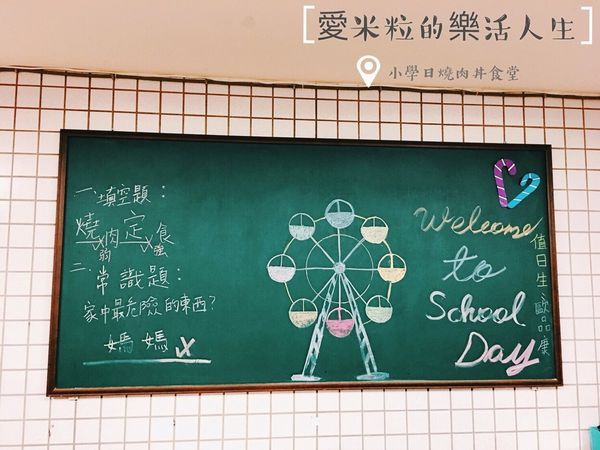 [愛米粒的樂活人生]
小學日燒肉丼食堂
一、填空題：
燒肉定食
弱 強
二、常識題：
家中最危險的東西?
媽媽
Welcome
to
School
Day
值日生